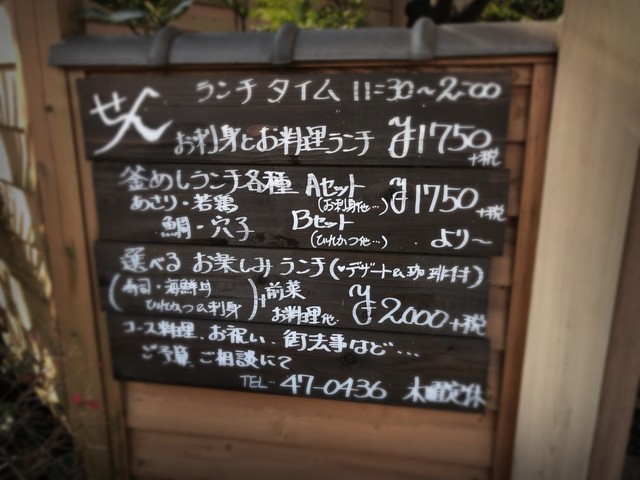 せん
ランチ タイム 11:30～2:00
お刺身とお料理ランチ ¥1750+税
釜めしランチ各種 Aセット ¥1750+税
あさり・若鶏 (お刺身他…)
鯛・穴子 Bセット より～
(ひれかつ他…)
選べる お楽しみ ランチ(♥デザート&珈琲付)
(寿司・海鮮丼 ひれかつ&刺身)+前菜 お料理他 ¥2,000+税
コース料理、お祝い、御法事など…
ご予算、ご相談にて
TEL… 47-0436 木曜定休